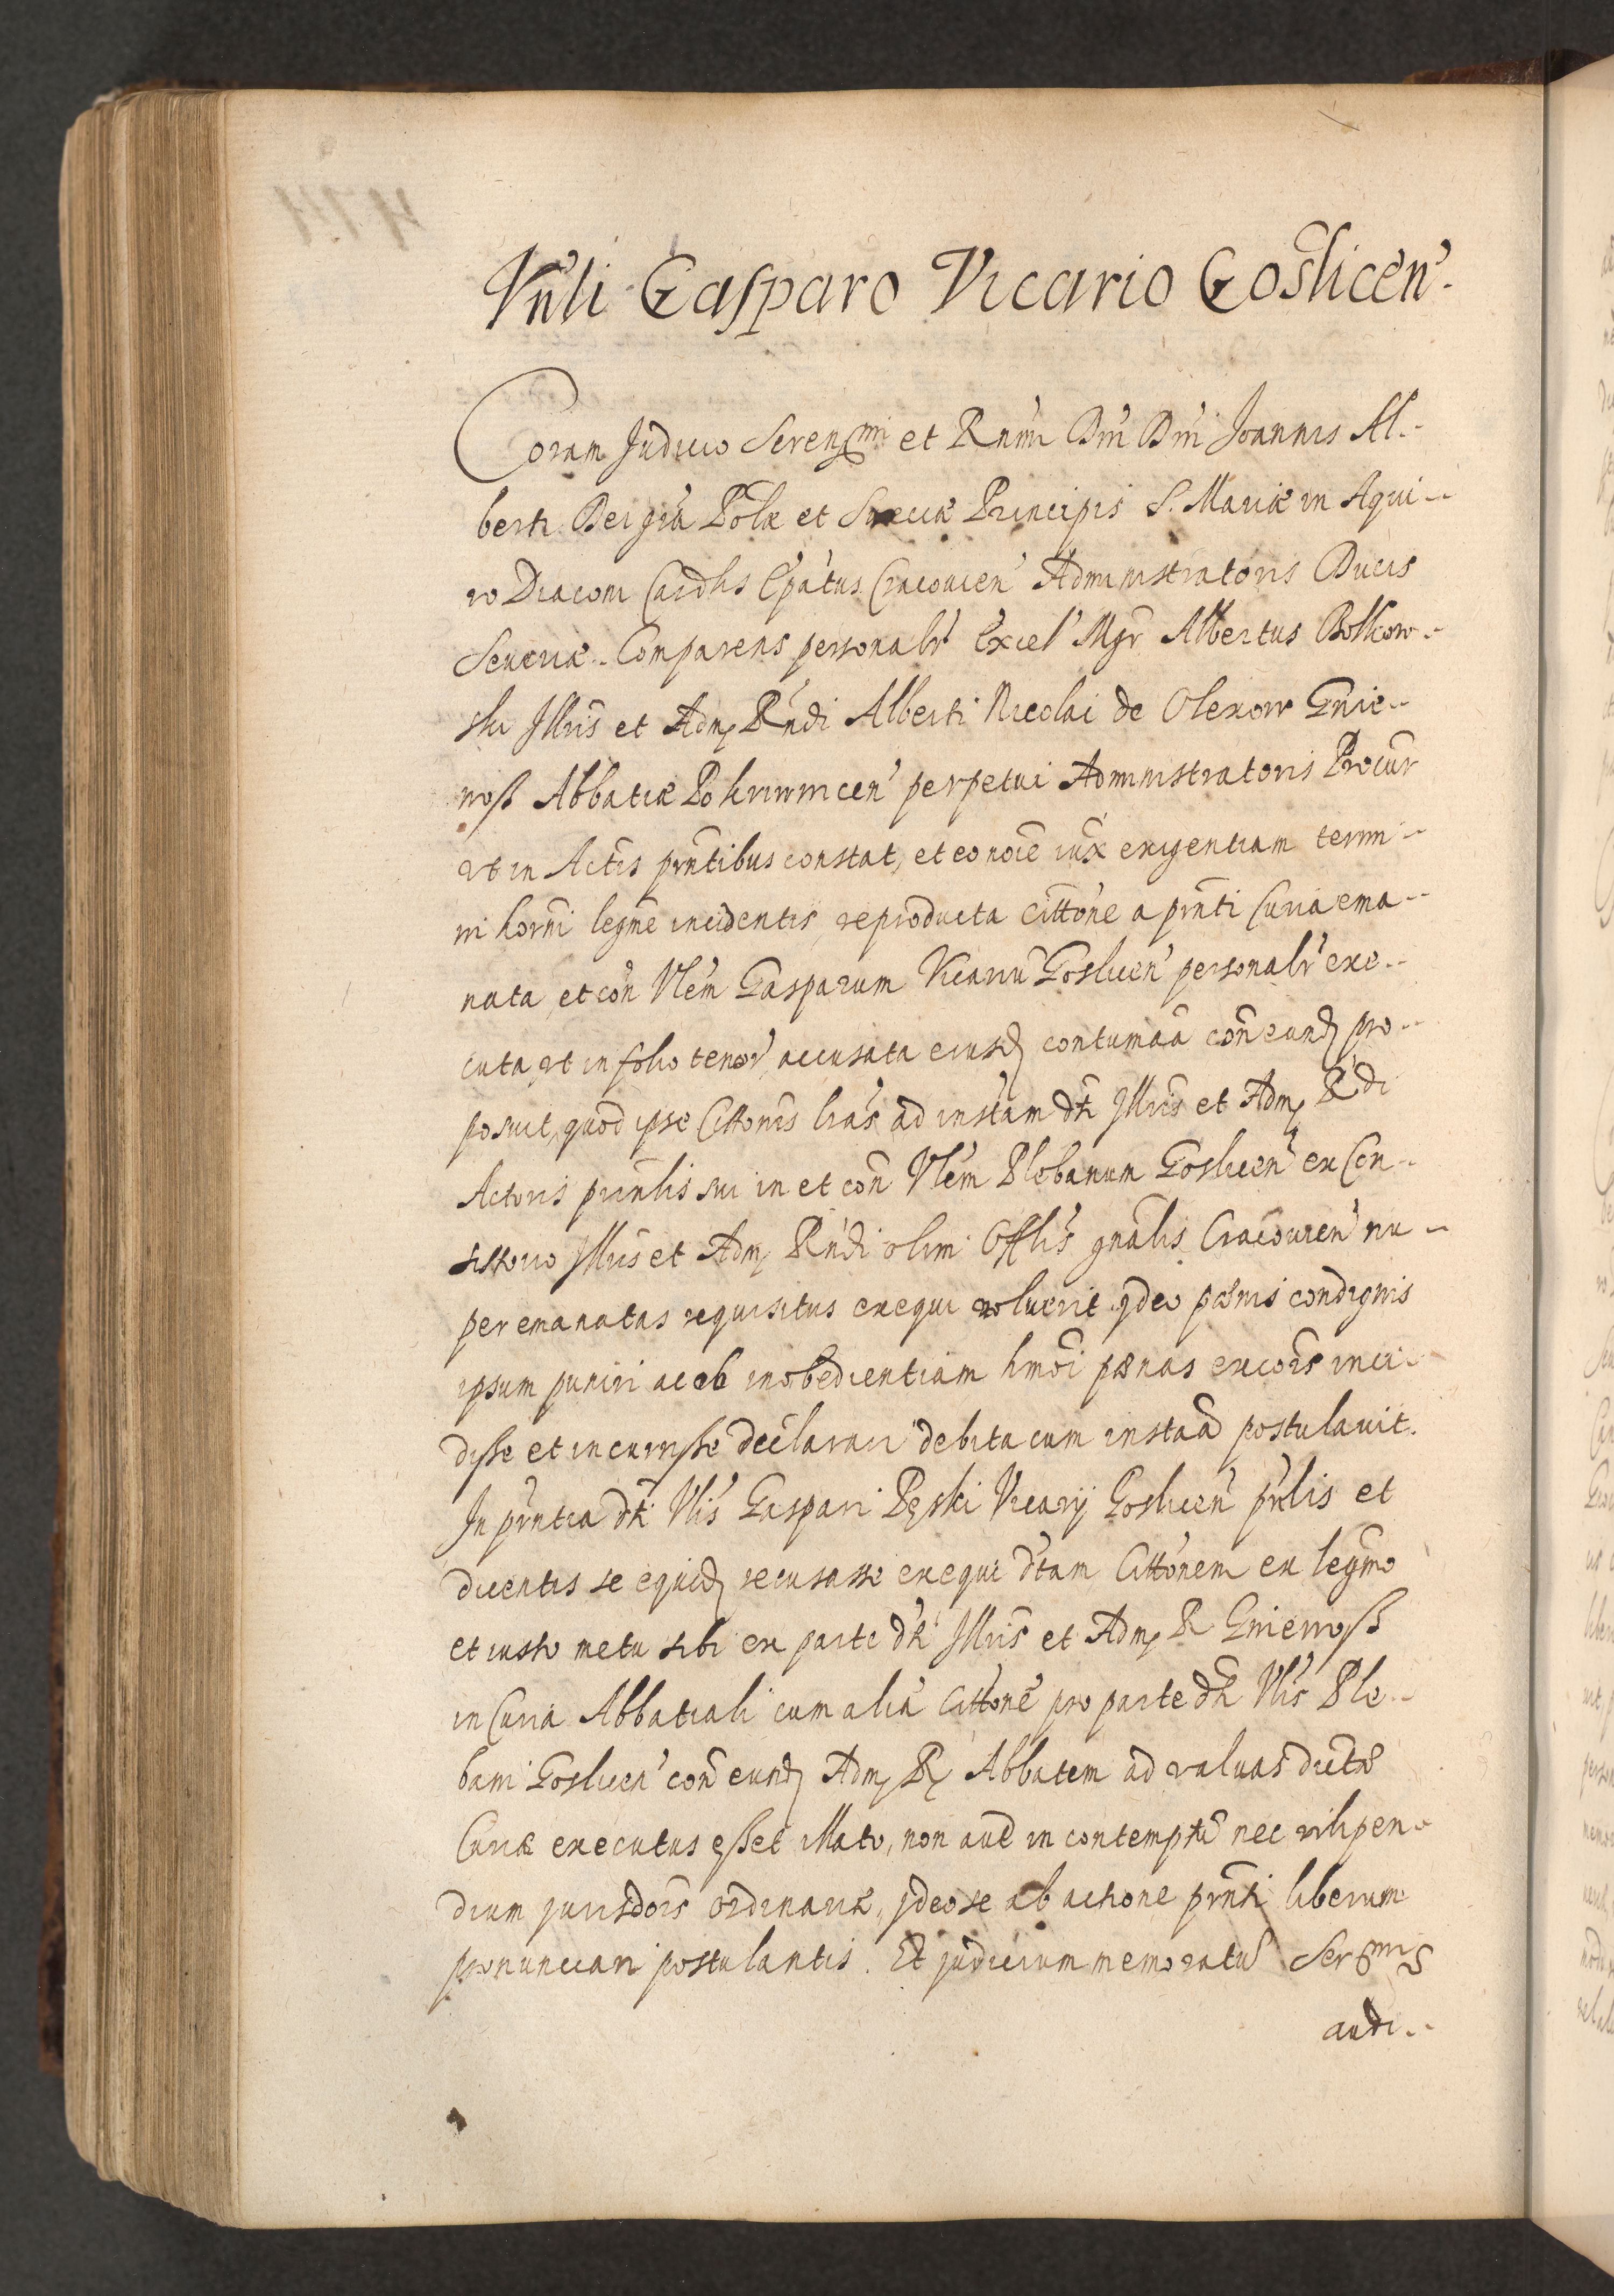 Vnli Gasparo Vicario Goslicen̄.
Coram Judicio Serenssmi et Rn̄mi Dn̄i Dn̄i Joannis Al-
berti Dei gr̄a Pol̄æ et Sueciæ Principis S. Mariæ in Aqui-
ro Diaconi Card̄lis Ep̄atus Cracovien̄ Administratoris Ducis
Severiæ. Comparens personalr̄ Excel̄ Mgr̄ Albertus Bolkow-
ski Illris et Adm̄ Rn̄di Alberti Nicolai de Olexow Gnie-
wosz Abbatiæ Pokrziwnicen̄ perpetui Administratoris Procur̄
vt in Actis pn̄tibus constat, et eo noīe iux̄ exigentiam termi-
ni horn̄i legmē incidentis, reproducta Citt̄one a pn̄ti Curia ema-
nata, et con̄ Vlēm Gasparum Vicariū Goslicen̄ personalr̄ exe-
cuta, vt in folio tenor̄, accusata eiusd̄ contumāā con̄ eund̄ pro-
posuit, quod ipse Citt̄onis lr̄as ad inst̄am dt̄i Illris et Adm̄ Rd̄i
Actoris prin̄lis sui in et con̄ Vlēm Plebanum Goslicen̄ ex Con-
sistorio Illris et Adm̄ Rn̄di olim Offl̄is gn̄alis Cracovien̄ nu-
per emanatas requisitus exequi noluerit, ideo pœnis condignis
ipsum puniri ac ob inobedientiam hmōi pænas excōis inci-
disse et incurrisse declarari debita cum instāā postulavit.
In pn̄tia dt̄i Vlīs Gaspari Pęski Vicarij Goslicen̄ pn̄lis et
dicentis se equid̄ recusasse exequi dt̄am Citt̄onem ex legmō
et iusto metu sibi ex parte dt̄i Illris et Adm̄ R Gniewosz
in Curia Abbatiali cum aliā Citt̄onē pro parte dt̄i Vlīs Ple-
bani Goslicen̄ con̄ eund̄ Adm̄ R Abbatem ad valvas dictæ
Curiæ executus esset illato, non aut̄ in contemptū nec vilipen-
dium jurisdōis ordinariæ, ideo se ab actione pn̄ti liberum
pronunciari postulantis. Et judicium memoratū Serssmus
audi--